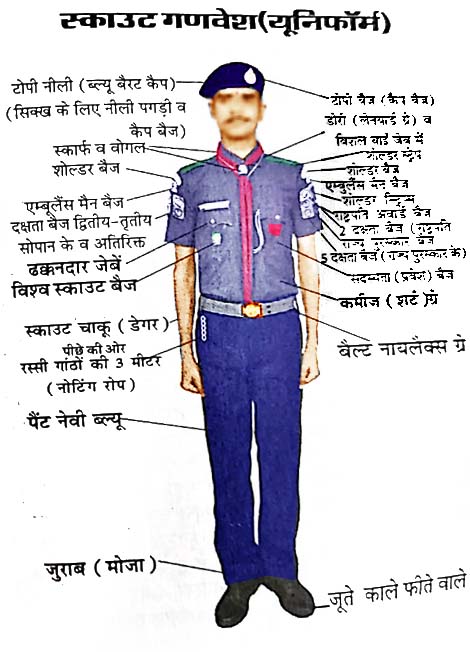 स्काउट गणवेश(यूनिफॉर्म)
टोपी नीली (ब्ल्यू बैरट कैप)
(सिक्ख के लिए नीली पगड़ी व
कैप बैज)
स्कार्फ व वोगल
शोल्डर बैज
एम्बूलैंस मैन बैज
दक्षता बैज द्वितीय-तृतीय
सोपान के व अतिरिक्त
ढक्कनदार जेबें
विश्व स्काउट बैज
स्काउट चाकू (डेगर)
पीछे की ओर
रस्सी गांठों की 3 मीटर
(नोटिंग रोप)
पैंट नेवी ब्ल्यू
जुराब (मोजा)
टोपी बैज (कैप बैज)
डोरी (लेनयार्ड ग्रे) व
विसल बाई जेब में
शोल्डर स्ट्रेप
शोल्डर बैज
एम्बुलेंस मैन बैज
शोल्डर
राष्ट्रपति अवार्ड बैज
2 दक्षता बैज (राष्ट्रपति
राज्य पुरस्कार बैज
5 दक्षता बैज (राज्य पुरस्कार के)
सदस्यता (प्रवेश) बैज
कमीज (शर्ट)ग्रे
बैल्ट नायलैक्स ग्रे
जूते काले फीते वाले